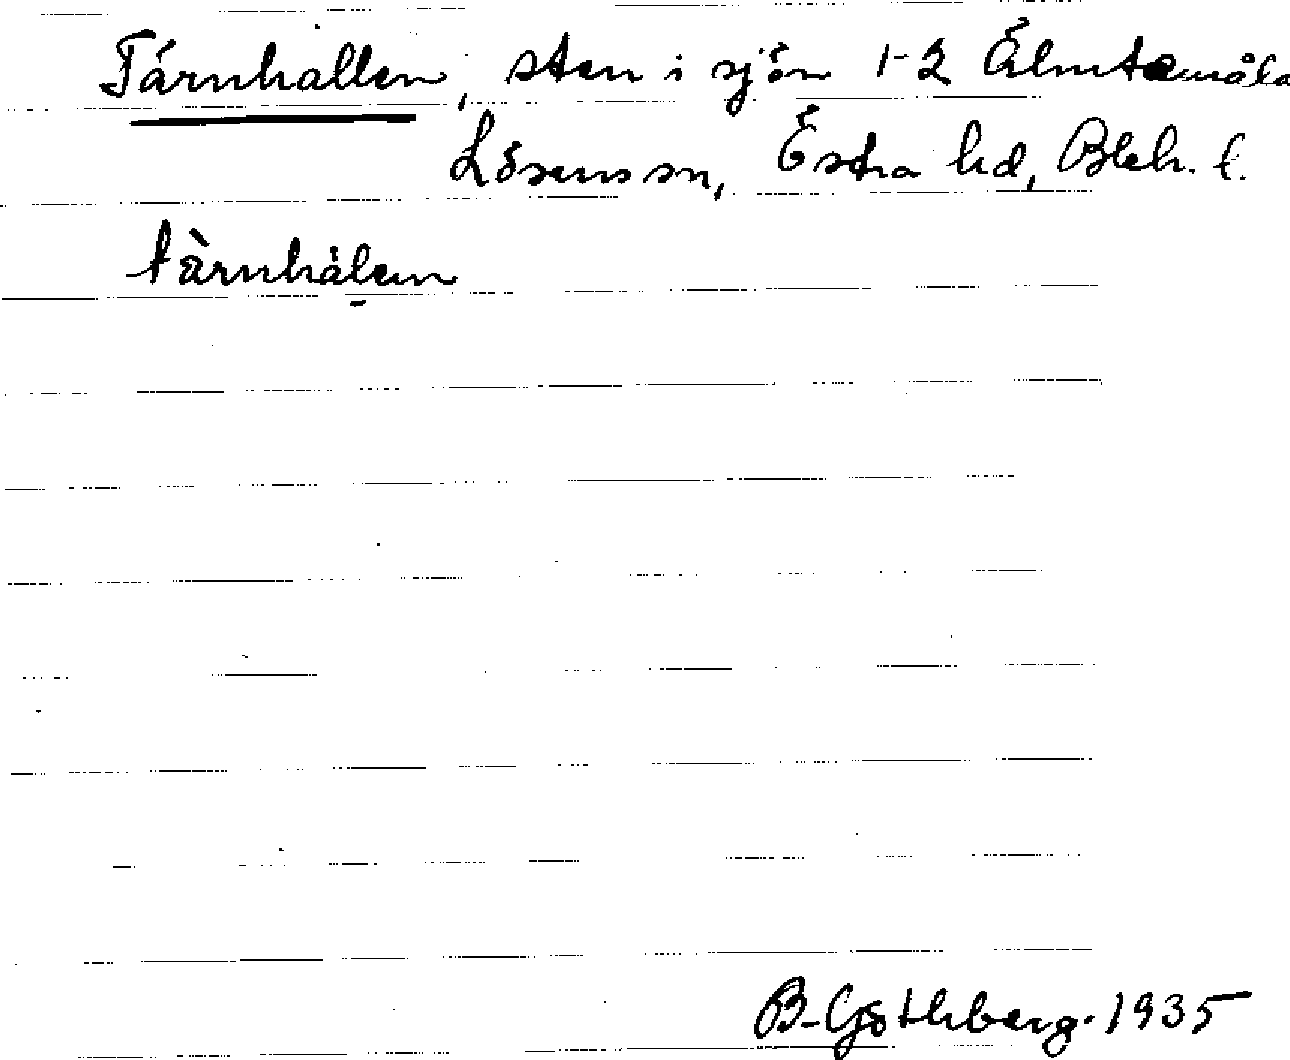 Tärnhallen, sten i sjön 1-2 Älmtamåla
Lösens sn, Östra hd, Blek. l.
tàrnhálen
B. Göthberg. 1935